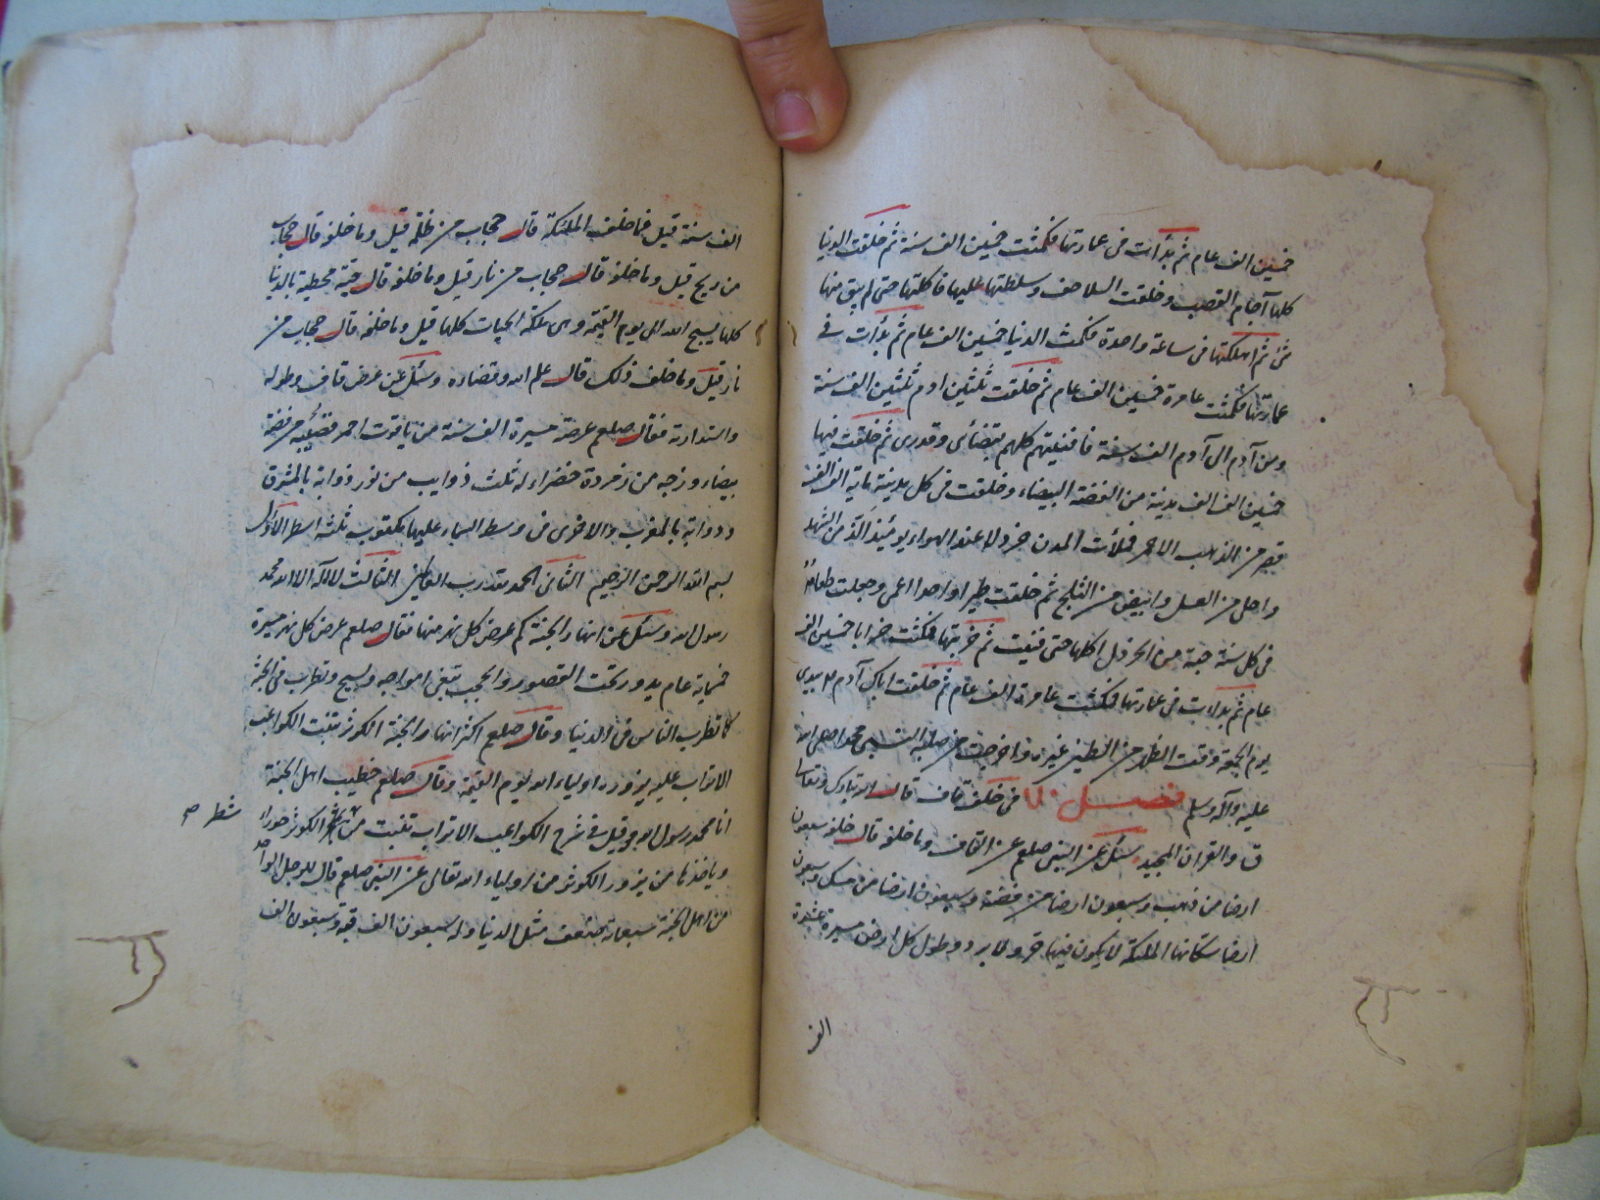 خمسين الف عام ثم بدأت في عمارتها فمكثت خمسين الف سنة ثم خلقت الدنيا
كلها آجام القصب وخلقت السلاحف وسلطتها عليها فاكلتها حتى لم يبق منها
شئ ثم اهلكتها في ساعة واحدة فمكث الدنيا خمسين الف عام ثم بدأت في
عمارتها فمكثت عامرة خمسين الف عام ثم خلقت ثلثين ادم ثلثين الف سنة
ومن آدم الى آدم الف سنة فافنيتهم كلهم بقضائي وقدري ثم خلقت فيها
خمسين الف الف مدينة من الفضة البيضاء وخلقت في كل مدينة ماية الف الف
قصر من الذهب الاحمر فملأت المدن خردلا عند الهواء يومئذ الذ من الشهد
واحلى من العسل وابيض من الثلج ثم خلقت طيرا واحدا اعمى وجعلت طعامه
في كل سنة حبة من الخردل اكلها حتى فنيت ثم خربتها فمكثت خرابا خمسين الف
عام ثم بدأت في عمارتها فمكثت عامرة الف عام ثم خلقت اباك آدم م بيدي
يوم الجمعة وقت الظهر من الطين غيره واخرجت من صلبه النبي محمدا صلى الله
عليه وآله وسلم فصل في خلق قاف قال الله تبارك وتعالى
ق والقران المجيد سئل عن النبي صلعم عن القاف وما خلفه قال خلفه سبعون
ارضا من ذهب وسبعون ارضا من فضة وسبعون ارضا من مسك وسبعون
ارضا سكانها الملئكة لا يكون فيها حر ولا برد وطول كل ارض مسيرة عشرة
الف
الف سنة قيل فما خلف الملئكة قال حجاب من ظلمة قيل وما خلفه قال حجاب
من ريح قيل وما خلفه قال حجاب من نار قيل وما خلفه قال حية محيطة بالدنيا
كلها يسبح الله الى يوم القيمة وهى ملكة الحيات كلها قيل وما خلفه قال حجاب من
نار قيل وما خلف ذلك قال علم الله وقضاءه وسئل عن عرض قاف وطوله
واستدارته فقال صلعم عرضه مسيرة الف سنة من ياقوت احمر قضيبه من فضة
بيضاء وزجه من زمردة خضراء له ثلث ذوايب من نور ذوابة بالمشرق
وذوابة بالمغرب والاخرى في وسط السماء عليها مكتوب ثلثة اسطر الاول
بسم الله الرحمن الرحيم الثاني الحمد لله رب العالمين الثالث لا اله الا الله محمد
رسول الله وسئل عن انهار الجنة كم عرض كل نهر منها فقال صلعم عرض كل نهر مسيرة
خمسماية عام يدور تحت القصور والحجب تتغنى امواجه ويسبح وتطرب في الجنة
كما تطرب الناس في الدنيا وقال صلعم اكثر انهار الجنة الكوثر ينبت الكواعب
الاتراب عليه يزوره اولياء الله يوم القيمة وقال صلعم خطيب اهل الجنة
انا محمد رسول الله وقيل في شرح الكواعب الاتراب تنبت من شط الكوثر حوراء
شط صح
وياخذها من يزور الكوثر من اولياء الله تعالى عن النبي صلعم قال للرجل الواحد
من اهل الجنة سبعماية ضعف مثل الدنيا وله سبعون الف قبة وسبعون الف